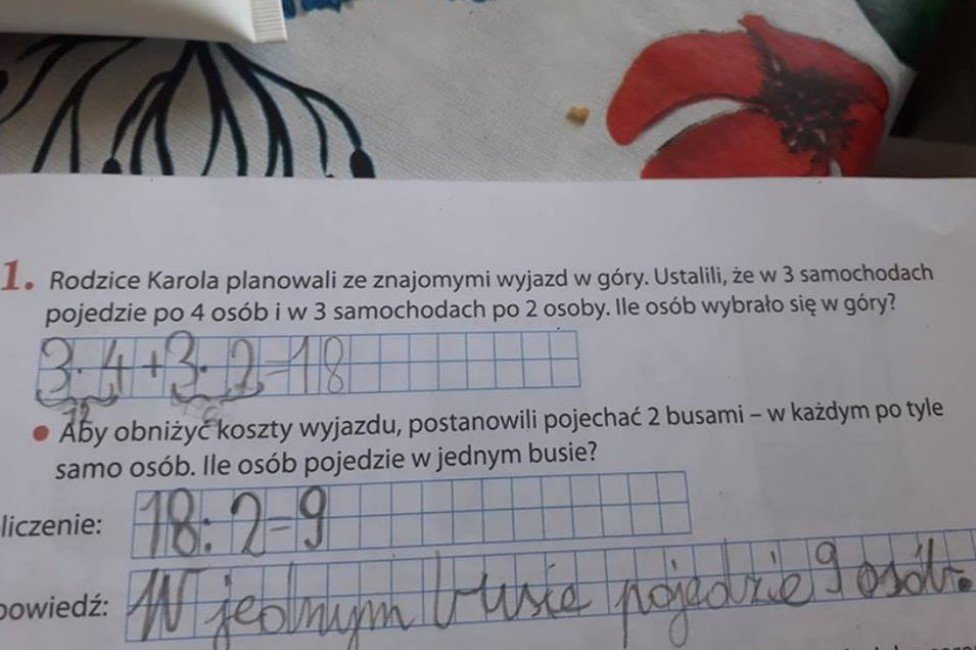 1. Rodzice Karola planowali ze znajomymi wyjazd w góry. Ustalili, że w 3 samochodach
pojedzie po 4 osób i w 3 samochodach po 2 osoby. Ile osób wybrało się w góry?
3·4+3·2=18
12 6
• Aby obniżyć koszty wyjazdu, postanowili pojechać 2 busami – w każdym po tyle
samo osób. Ile osób pojedzie w jednym busie?
liczenie: 18:2=9
powiedź: W jednym busie pojedzie 9 osób.